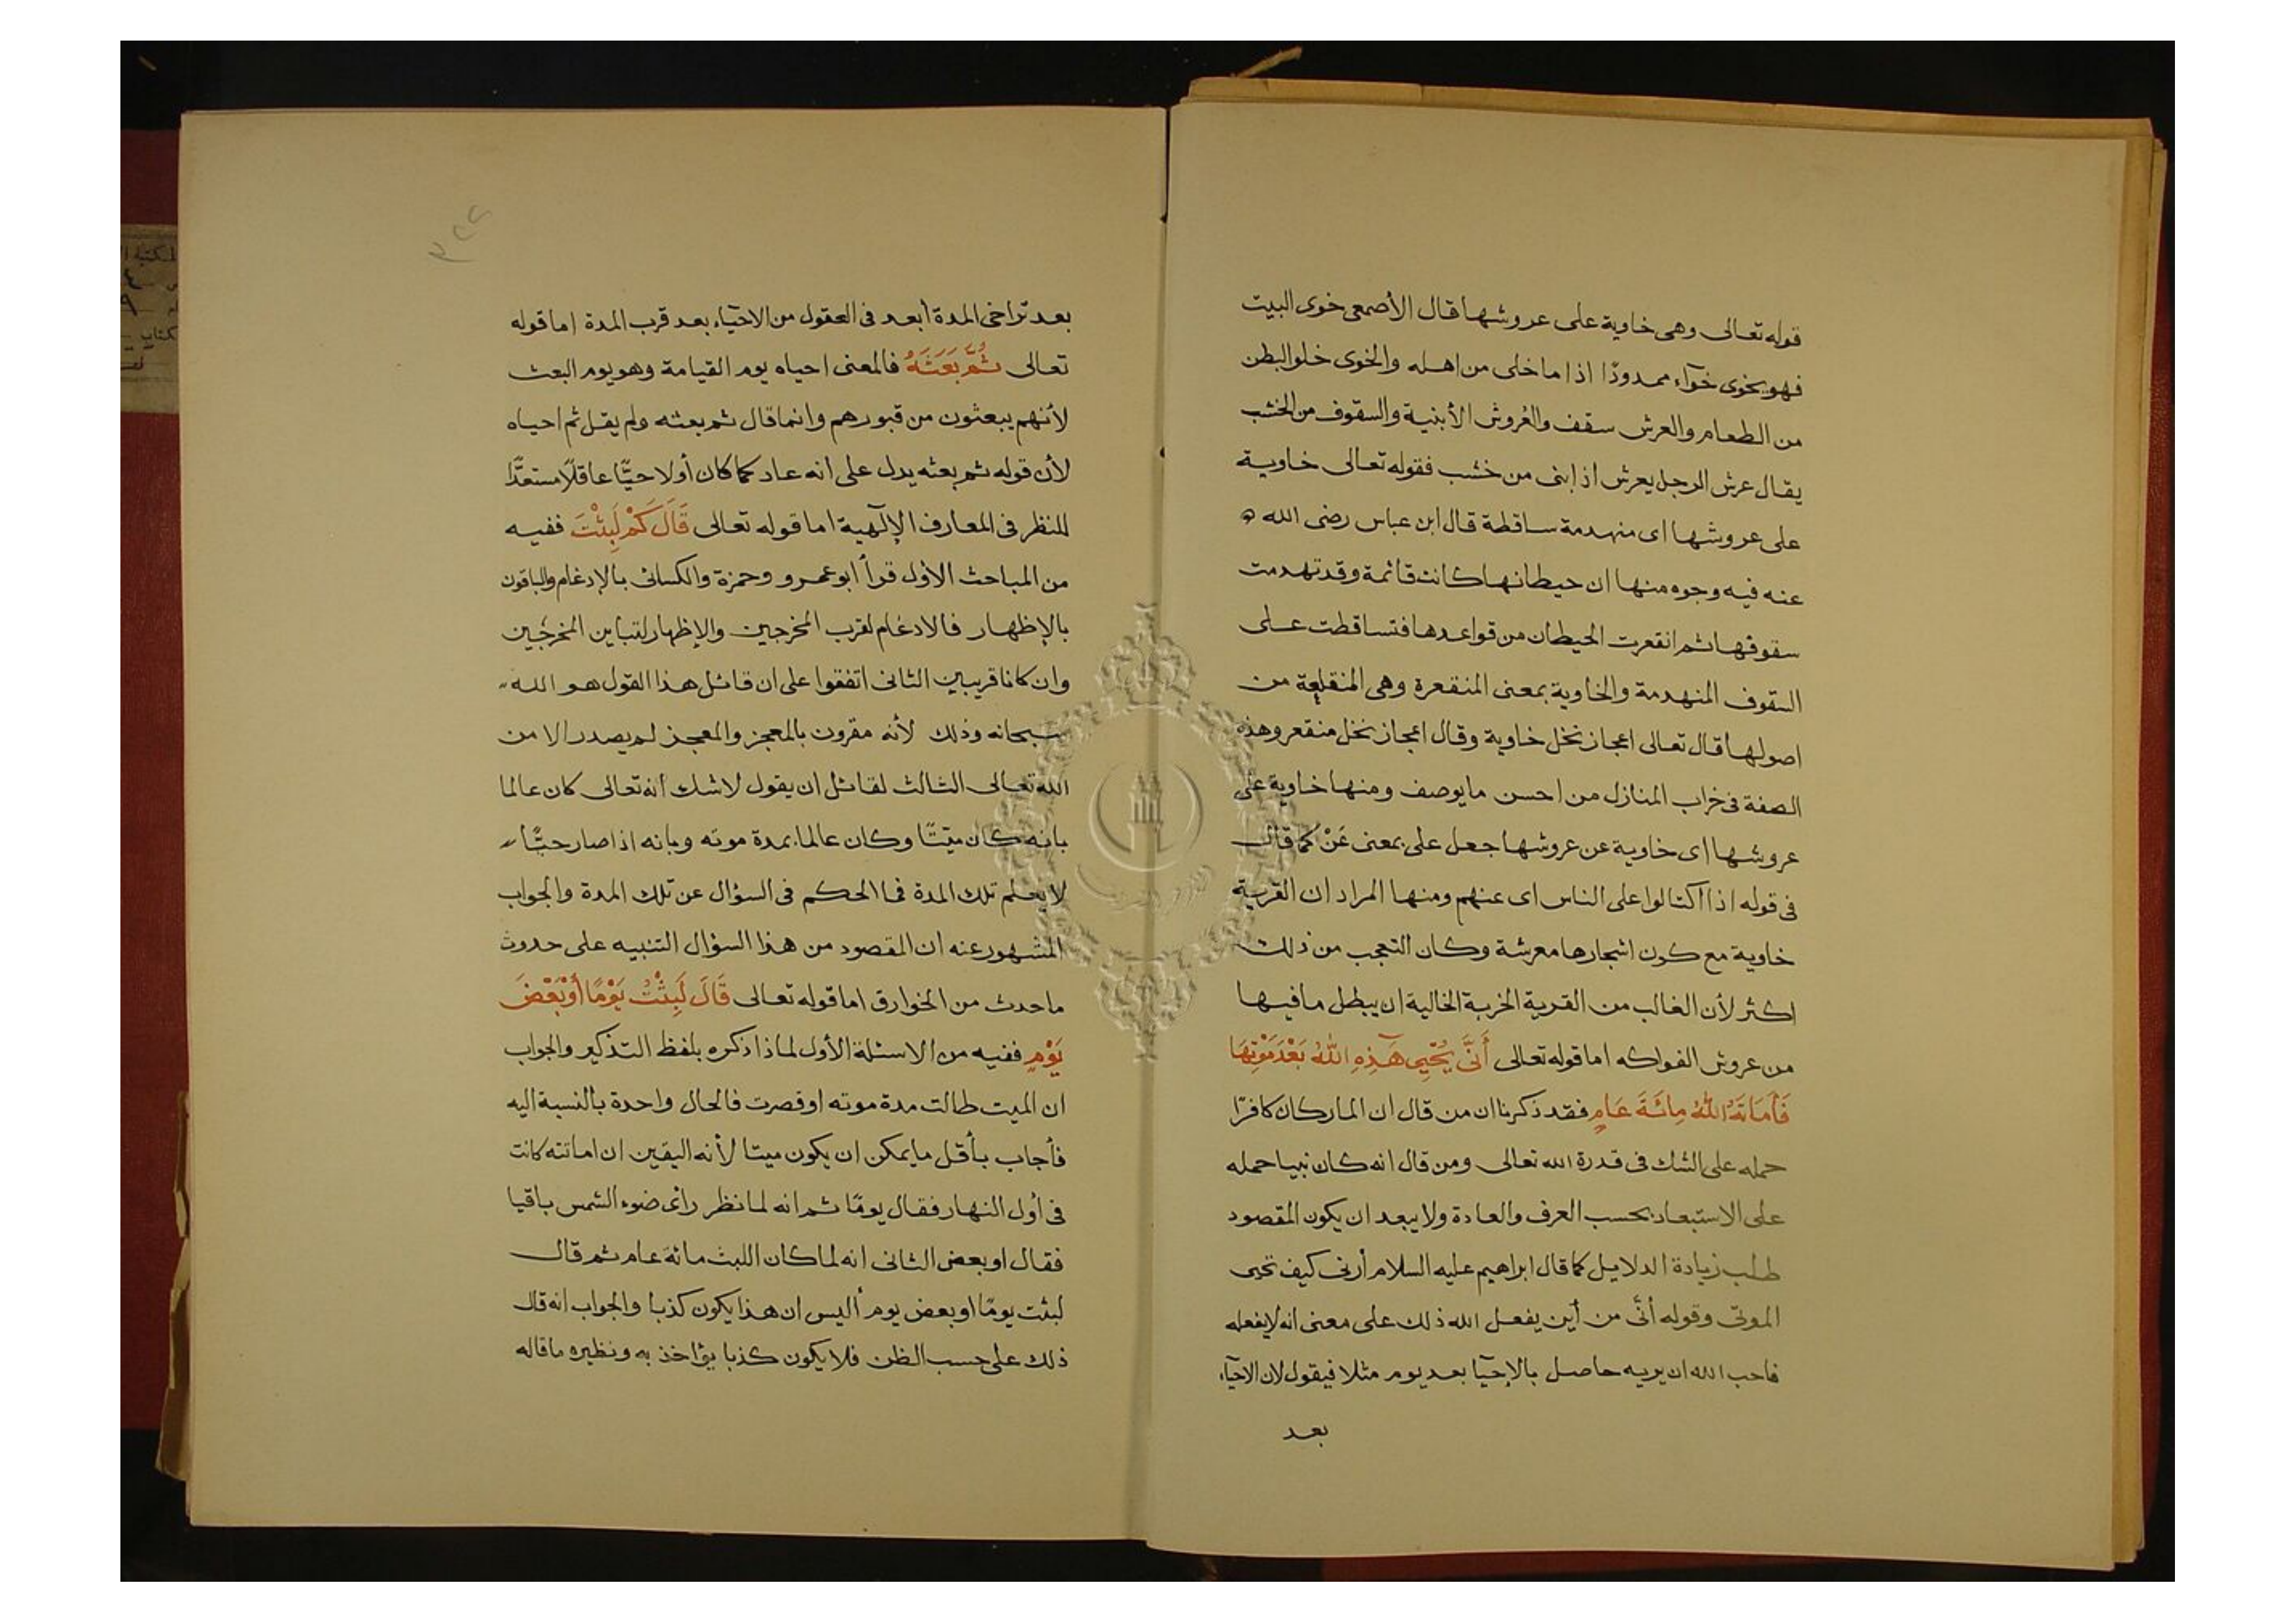 قوله تعالى وهى خاوية على عروشها قال الأصمعى خوى البيت
فهو يخوى خوآء ممدودًا اذا ما خلى من اهله والخوى خلو البطن
من الطعام والعرش سقف والعُروش الأبنية والسقوف من الخشب
يقال عرش الرجل يعرش اذ ابنى من خشب فقوله تعالى خاوية
على عروشها اى منهدمة ساقطة قال ابن عباس رضى الله
عنه فيه وجوه منها ان حيطانها كانت قائمة وقد تهدمت
سقوفها ثم انقعرت الحيطان من قواعدها فتساقطت على
السقوف المنهدمة والخاوية بمعنى المنقعرة وهى المنقلعة من
اصولها قال تعالى اعجاز نخل خاوية وقال اعجاز نخل منقعر وهذه
الصفة فى خراب المنازل من احسن ما يوصف ومنها خاوية على
عروشها اى خاوية عن عروشها جعل على بمعنى عَنْ كما قال
فى قوله اذا اكتالوا على الناس اى عنهم ومنها المراد ان القرية
خاوية مع كون اشجارها معرشة وكان التعجب من ذلك
اكثر لأن الغالب من القرية الخربة الخالية ان يبطل ما فيها
من عروش الفواكه اما قوله تعالى أَنَّى يُحْيِى هَذِهِ اللهُ بَعْدَ مَوْتِهَا
فَأَمَاتَهُ اللهُ مِائَةَ عَامٍ فقد ذكرنا ان من قال ان المار كان كافرًا
حمله على الشك فى قدرة الله تعالى ومن قال انه كان نبيا حمله
على الاستبعاد بحسب العرف والعادة ولا يبعد ان يكون المقصود
طلب زيادة الدلايل كما قال ابراهيم عليه السلام أرنى كيف تحيى
الموتى وقوله أنَّى من أين يفعل الله ذلك على معنى انه لا يفعله
فاحب الله ان يريه حاصل بالإحيآ بعد يوم مثلا فيقول لان الاحيآء
بعد
٣٢٢
بعد تراخى المدة أبعد فى العقول من الاحيآء بعد قرب المدة اما قوله
تعالى ثُمَّ بَعَثَهُ فالمعنى احياه يوم القيامة وهو يوم البعث
لأنهم يبعثون من قبورهم وانما قال ثم بعثه ولم يقل ثم احياه
لأن قوله ثم بعثه يدل على انه عاد كما كان أولا حيًّا عاقلًا مستعدًّا
للنظر فى المعارف الإلٓهية اما قوله تعالى قَالَ كَمْ لَبِثْتَ ففيه
من المباحث الأول قرأ ابو عمرو وحمزة والكسائى بالإدغام والباقون
بالإظهار فالادغام لقرب المخرجين والإظهار لتباين المخرجين
وان كانا قريبين الثانى اتفقوا على ان قائل هذا القول هو الله
سبحانه وذلك لأنه مقرون بالمعجز والمعجز لم يصدر الا من
الله تعالى الثالث لقائل ان يقول لا شك أنه تعالى كان عالما
بانه كان ميّتًا وكان عالما بمدة موته وبانه اذا صار حيًّا
لا يعلم تلك المدة فما الحكم فى السؤال عن تلك المدة والجواب
المشهور عنه ان المقصود من هذا السؤال التنبيه على حدوث
ما حدث من الخوارق اما قوله تعالى قَالَ لَبِثْتُ يَوْمًا أَوْ بَعْضَ
يَوْمٍ ففيه من الاسئلة الأول لماذا ذكره بلفظ التذكير والجواب
ان الميت طالت مدة موته او قصرت فالحال واحدة بالنسبة اليه
فأجاب بأقل ما يمكن ان يكون ميتا لأنه اليقين ان اماتته كانت
فى أول النهار فقال يومًا ثم انه لما نظر رأى ضوء الشمس باقيا
فقال او بعض الثانى انه لما كان اللبث مائة عام ثم قال
لبثت يومًا او بعض يوم أليس ان هذا يكون كذبا والجواب انه قال
ذلك على حسب الظن فلا يكون كذبا يؤاخذ به ونظيره ما قاله